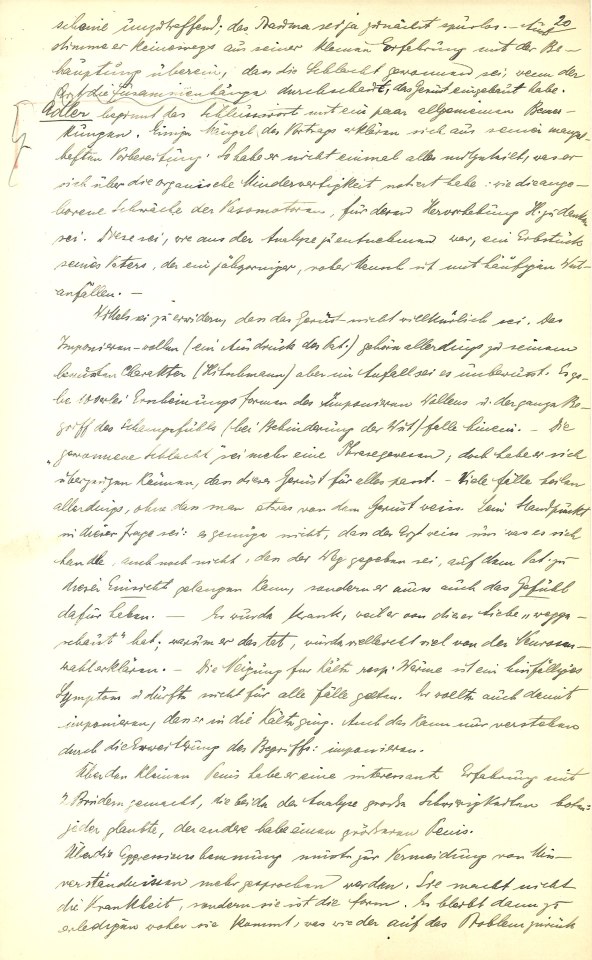 20
scheine unzutreffend; das Trauma sei ja zunächst spurlos. – Auch
stimme er keineswegs aus seiner kleinen Erfahrung mit der Be-
hauptung überein, dass die Schlacht gewonnen sei, wenn der
Arzt die Zusammenhänge durchschaut, das Gerüst eingebaut habe.
Adler beginnt das Schlusswort mit ein paar allgemeinen Bemer-
kungen. Einige Mängel des Vortrags erklären sich aus seiner mangel-
haften Vorbereitung. So habe er nicht einmal alles mitgeteilt, was er
sich über die organische Minderwertigkeit notiert habe: wie die ange-
borene Schwäche der Vasomotoren, für deren Hervorhebung H. zu danken
sei. Diese sei, wie aus der Analyse zu entnehmen war, ein Erbstück
seines Vaters, der ein jähzorniger, roher Mensch ist mit häufigen Wut-
anfällen. –
Wittels sei zu erwidern, dass das Gerüst nicht willkürlich sei. Das
Imponieren-wollen (ein Ausdruck des Pat.) gehöre allerdings zu seinem
bewussten Charakter (Hitschmann) aber im Anfall sei es unbewusst. Es ge-
be 1000erlei Erscheinungsformen des Imponieren Wollens u. der ganze Be-
griff des Schamgefühls (bei Behinderung der Wut) falle hinein. – Die
"gewonnene Schlacht" sei mehr eine Phrase gewesen; doch habe er sich
überzeugen können, dass dieses Gerüst für alles passt. – Viele Fälle heilen
allerdings, ohne dass man etwas von dem Gerüst weiss. Sein Standpunkt
in dieser Frage sei: es genüge nicht, dass der Arzt weiss um was es sich
handle, auch noch nicht, dass der Weg gegeben sei, auf dem Pat. zu
dieser Einsicht gelangen kann, sondern er muss auch das Gefühl
dafür haben. – Er wurde krank, weil er von dieser Liebe "wegge-
schaut" hat; warum er das tat, würde vielleicht viel von der Neurosen-
wahl erklären. – Die Neigung für Kälte resp. Wärme ist ein hinfälliges
Symptom u. dürfte nicht für alle Fälle gelten. Er wollte auch damit
imponieren, dass er in die Kälte ging. Auch das kann nur verstehen
durch die Erweiterung des Begriffs: imponieren.
Über den kleinen Penis habe er eine interessante Erfahrung mit
2 Brüdern gemacht, die beide der Analyse grosse Schwierigkeiten boten:
jeder glaubte, der andere habe einen grösseren Penis.
Über die Aggressionshemmung müsste zur Vermeidung von Miss-
verständnissen mehr gesprochen werden. Sie macht nicht
die Krankheit, sondern sie ist die Form. Es bleibt dann zu
erledigen woher sie kommt, was wieder auf das Problem zurück